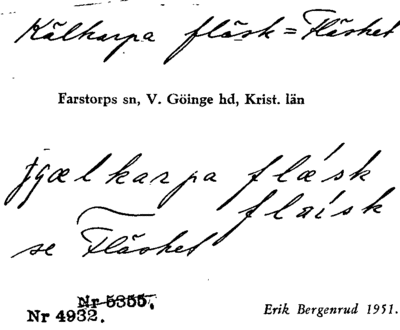 Kälkarpa fläsk = Fläsket
Farstorps sn, V. Göinge hd, Krist. län
tjælkarpa flæsk
flaisk
se Fläsket
Nr 5355.
Nr 4932.
Erik Bergenrud 1951.